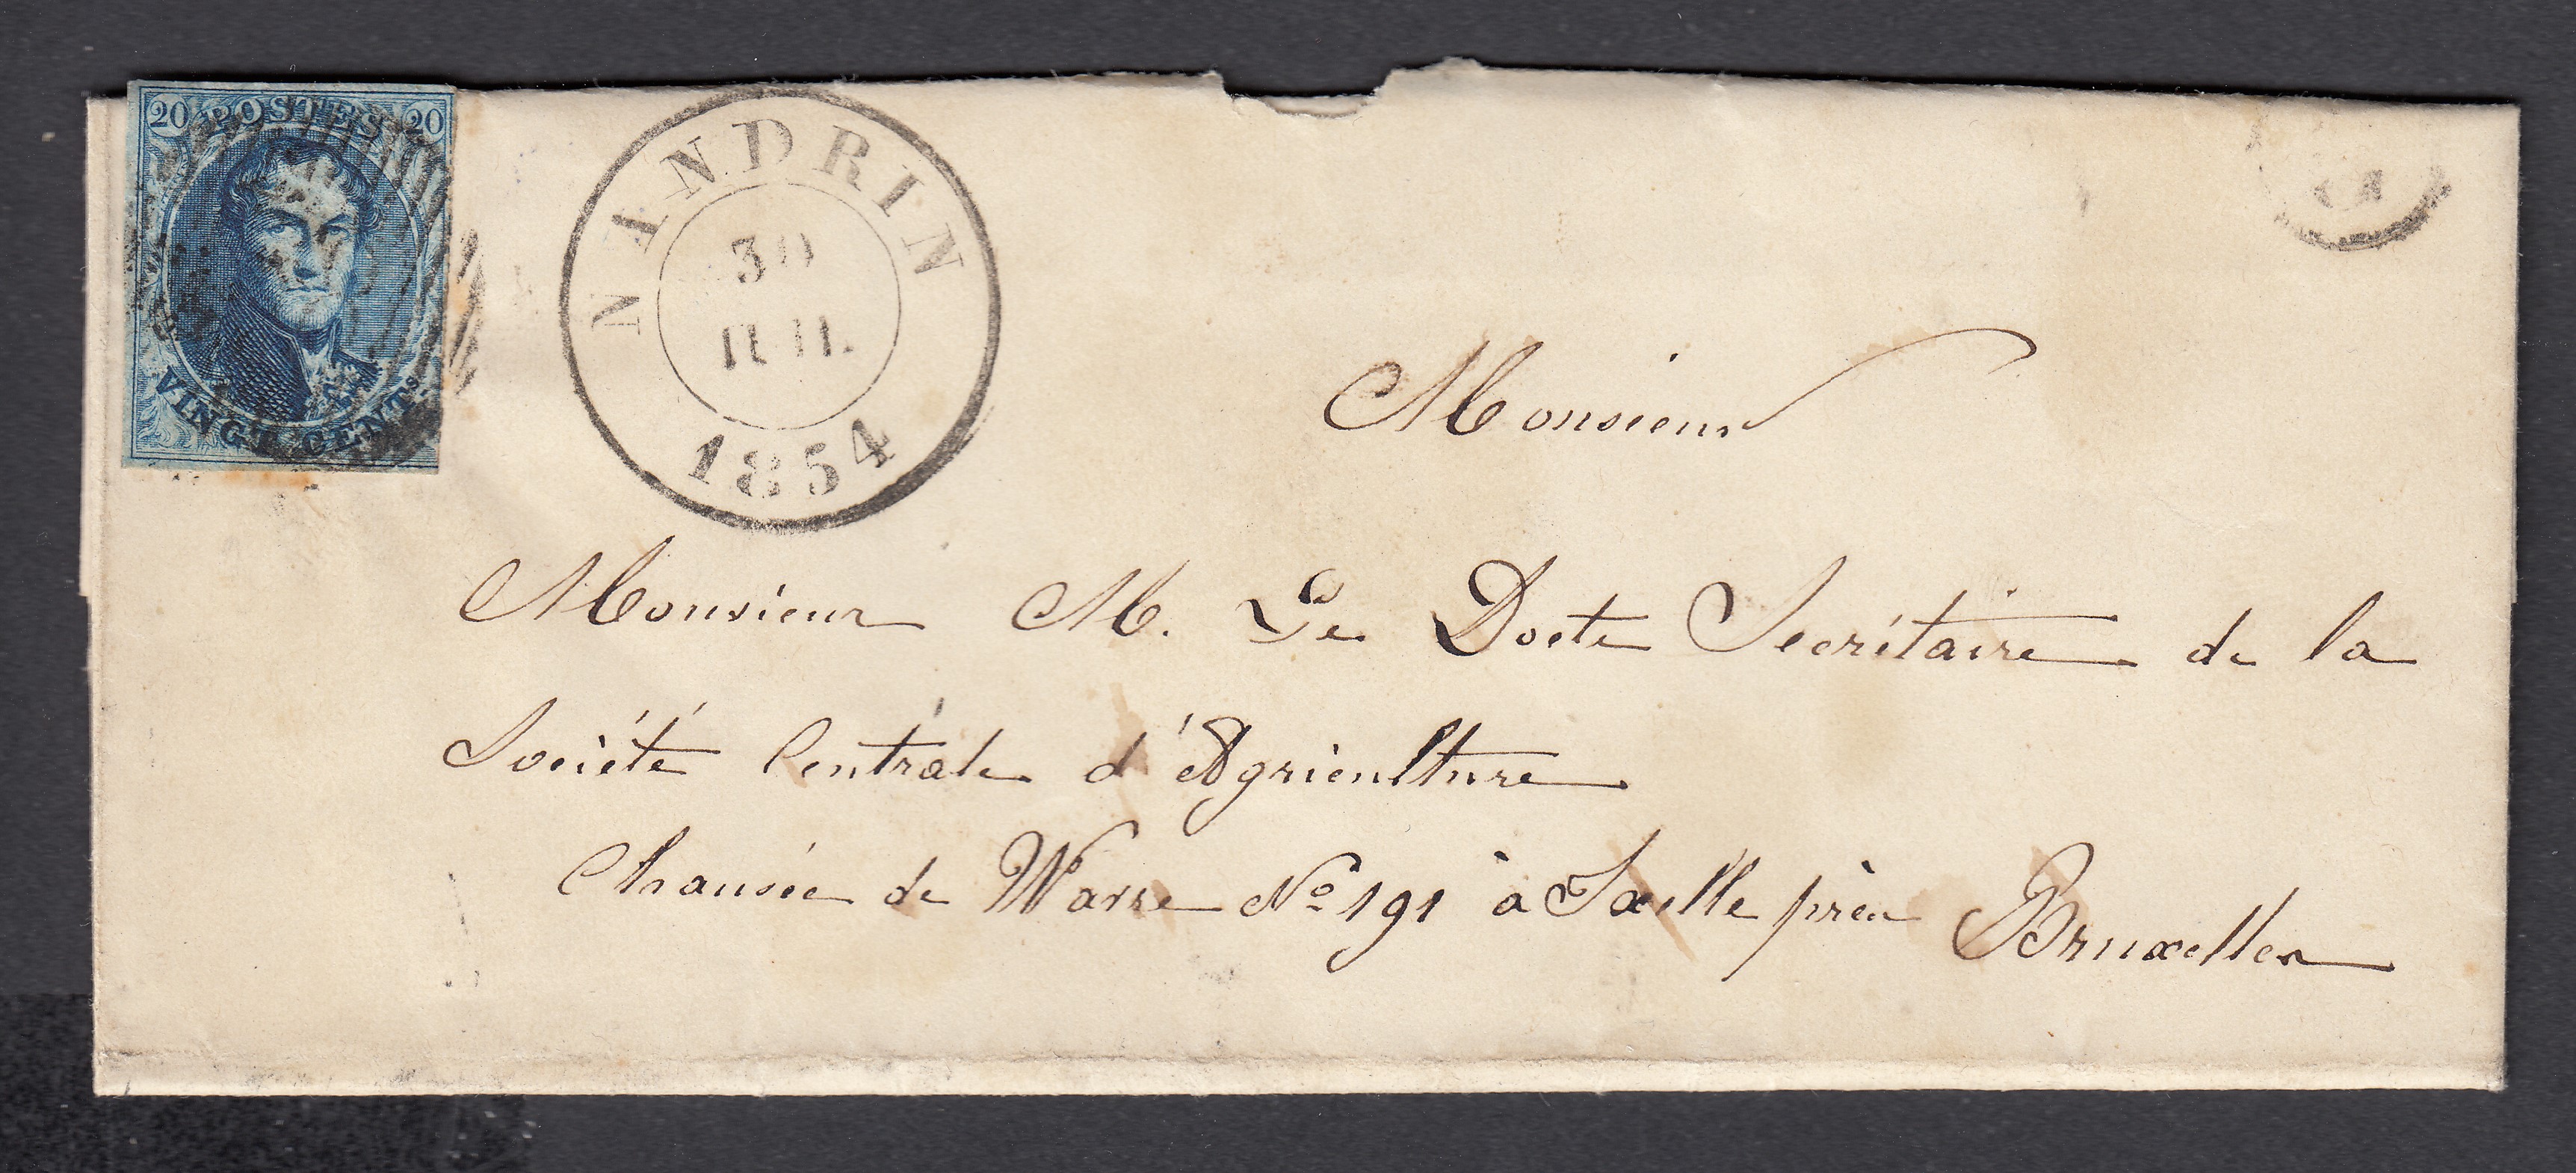 20 POSTES 20
VINGT CENTS
NANDRIN
30
JUIL.
1854
Monsieur
Monsieur M. Le Docte Secrétaire de la
Société Centrale d'Agriculture
Chausée de Wavre No 191 à Ixelle près Bruxelles